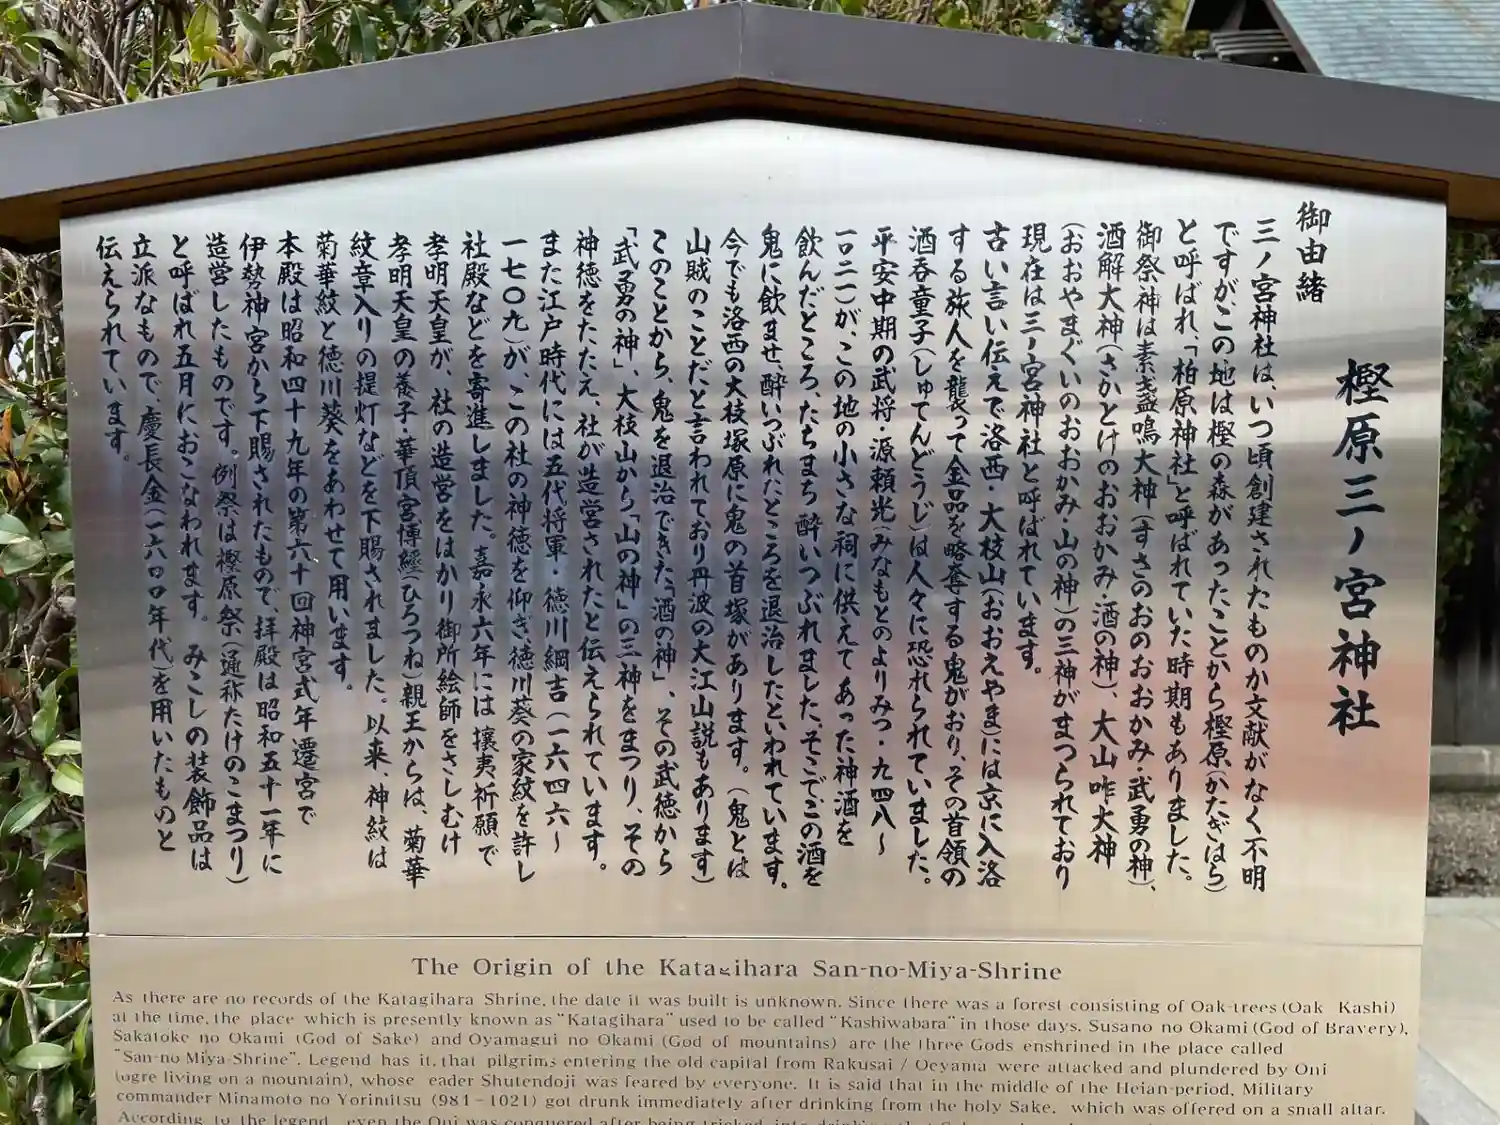 御由緒
樫原三ノ宮神社
三ノ宮神社は、いつ頃創建されたものか文献がなく不明
ですが、この地は樫の森があったことから樫原(かたぎはら)
と呼ばれ、「柏原神社」と呼ばれていた時期もありました。
御祭神は素戔嗚大神(すさのおのおおかみ・武勇の神)、
酒解大神(さかとけのおおかみ・酒の神)、大山咋大神
(おおやまぐいのおおかみ・山の神)の三神がまつられており
現在は三ノ宮神社と呼ばれています。
古い言い伝えで洛西・大枝山(おおえやま)には京に入洛
する旅人を襲って金品を略奪する鬼がおり、その首領の
酒呑童子(しゅてんどうじ)は人々に恐れられていました。
平安中期の武将・源頼光(みなもとのよりみつ・九四八〜
一〇二一)が、この地の小さな祠に供えてあった神酒を
飲んだところ、たちまち酔いつぶれました。そこでこの酒を
鬼に飲ませ、酔いつぶれたところを退治したといわれています。
今でも洛西の大枝塚原に鬼の首塚があります。(鬼とは
山賊のことだと言われており丹波の大江山説もあります)
このことから、鬼を退治できた「酒の神」、その武徳から
「武勇の神」、大枝山から「山の神」の三神をまつり、その
神徳をたたえ、社が造営されたと伝えられています。
また江戸時代には五代将軍・徳川綱吉(一六四六〜
一七〇九)が、この社の神徳を仰ぎ、徳川葵の家紋を許し
社殿などを寄進しました。嘉永六年には攘夷祈願で
孝明天皇が、社の造営をはかり御所絵師をさしむけ
孝明天皇の養子・華頂宮博經(ひろつね)親王からは、菊華
紋章入りの提灯などを下賜されました。以来、神紋は
菊華紋と徳川葵をあわせて用います。
本殿は昭和四十九年の第六十回神宮式年遷宮で
伊勢神宮から下賜されたもので、拝殿は昭和五十一年に
造営したものです。例祭は樫原祭(通称たけのこまつり)
と呼ばれ五月におこなわれます。みこしの装飾品は
立派なもので、慶長金(一六〇〇年代)を用いたものと
伝えられています。
The Origin of the Katagihara San-no-Miya-Shrine
As there are no records of the Katagihara Shrine, the date it was built is unknown. Since there was a forest consisting of Oak-trees (Oak Kashi)
at the time, the place which is presently known as "Katagihara" used to be called "Kashiwabara" in those days. Susano no Okami (God of Bravery),
Sakatoke no Okami (God of Sake) and Oyamagui no Okami (God of mountains) are the three Gods enshrined in the place called
"San-no Miya-Shrine". Legend has it, that pilgrims entering the old capital from Rakusai / Oeyama were attacked and plundered by Oni
(ogre living on a mountain), whose eader Shutendoji was feared by everyone. It is said that in the middle of the Heian-period, Military
commander Minamoto no Yorimitsu (981-1021) got drunk immediately after drinking from the holy Sake, which was offered on a small altar.
According to the legend, even the Oni was conquered after being tricked into drinking that